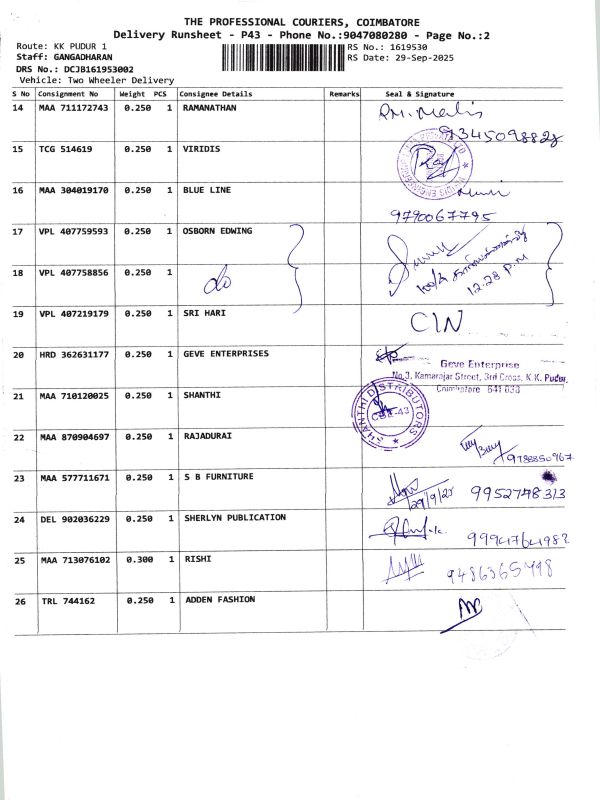 THE PROFESSIONAL COURIERS, COIMBATORE
Delivery Runsheet - P43 - Phone No.:9047080280 - Page No.:2
Route: KK PUDUR 1
RS No.: 1619530
Staff: GANGADHARAN
RS Date: 29-Sep-2025
DRS No.: DCJB161953002
Vehicle: Two Wheeler Delivery
S No Consignment No Weight PCS Consignee Details Remarks Seal & Signature
14 MAA 711172743 0.250 1 RAMANATHAN
15 TCG 514619 0.250 1 VIRIDIS
16 MAA 304019170 0.250 1 BLUE LINE
9790067795
17 VPL 407759593 0.250 1 OSBORN EDWING
18 VPL 407758856 0.250 1 do
12.28 P.M
19 VPL 407219179 0.250 1 SRI HARI
20 HRD 362631177 0.250 1 GEVE ENTERPRISES
Geve Enterprise
No.3, Kamarajar Street, 3rd Cross, K.K. Pudur,
Coimbatore 641 038
21 MAA 710120025 0.250 1 SHANTHI
SHANTHI DISTRIBUTORS
CBE-43
22 MAA 870904697 0.250 1 RAJADURAI
23 MAA 577711671 0.250 1 S B FURNITURE
29/9/25 9952748313
24 DEL 902036229 0.250 1 SHERLYN PUBLICATION
25 MAA 713076102 0.300 1 RISHI
9486365498
26 TRL 744162 0.250 1 ADDEN FASHION